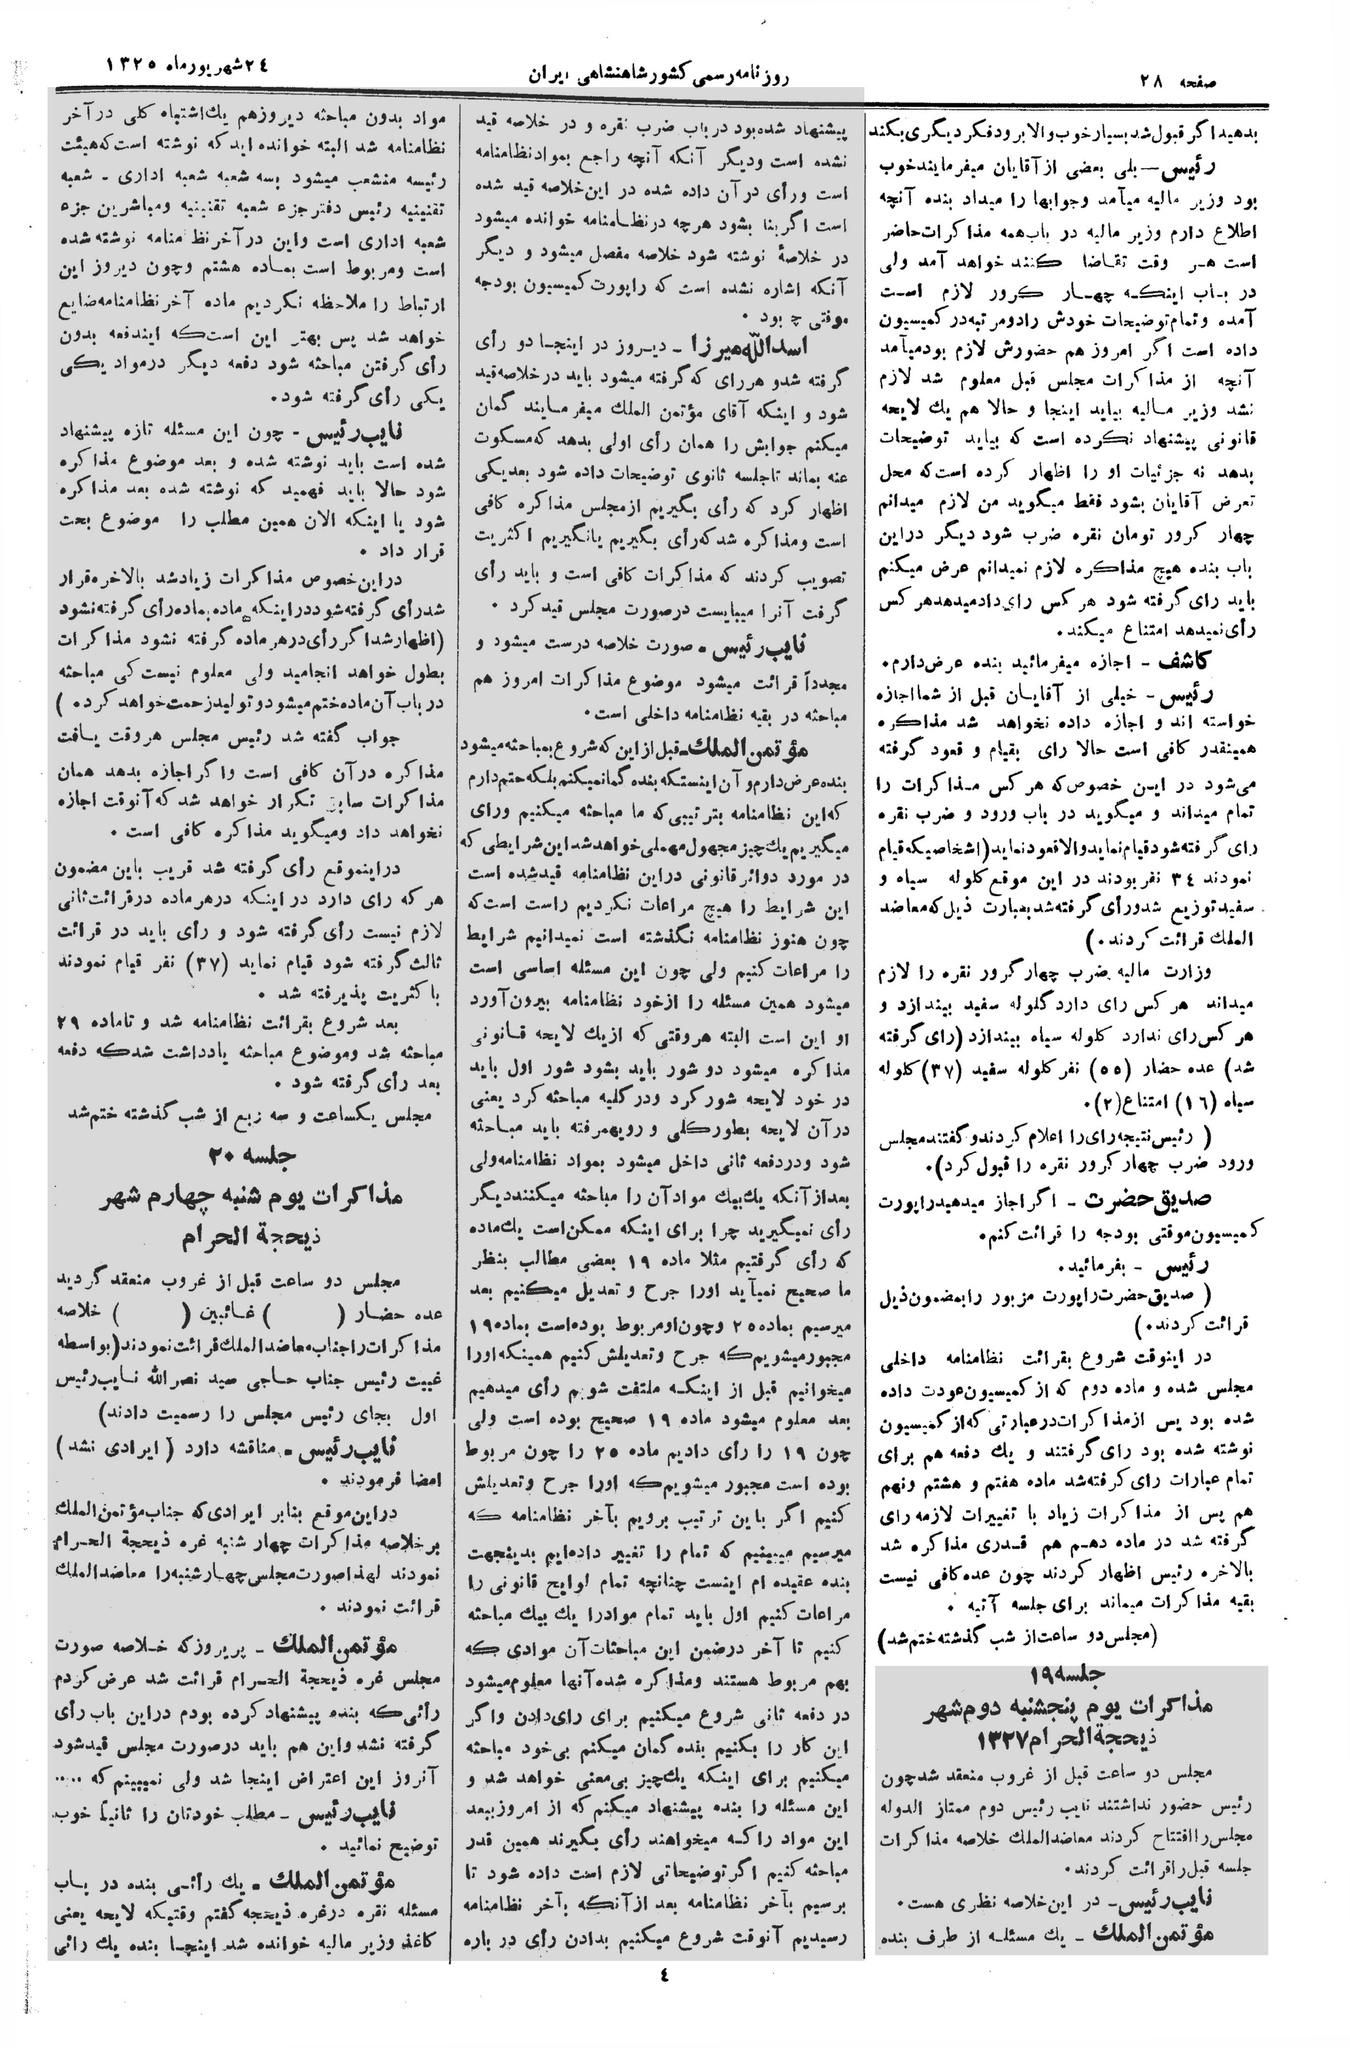 صفحه ۲۸
روزنامه رسمی کشور شاهنشاهی ایران
۲۴ شهریور ماه ۱۳۲۵
بدهید اگر قبول شد بسیار خوب والا برود فکر دیگری بکند
رئیس – بلی بعضی از آقایان میفرمایند خوب
بود وزیر مالیه میآمد وجوابها را میداد بنده آنچه
اطلاع دارم وزیر مالیه در باب همه مذاکرات حاضر
است هر وقت تقاضا کنند خواهد آمد ولی
در باب اینکه چهار کرور لازم است
آمده و تمام توضیحات خودش را دو مرتبه در کمیسیون
داده است اگر امروز هم حضورش لازم بود میآمد
آنچه از مذاکرات مجلس قبل معلوم شد لازم
نشد وزیر مالیه بیاید اینجا و حالا هم یك لایحه
قانونی پیشنهاد نکرده است که بیاید توضیحات
بدهد نه جزئیات او را اظهار کرده است که محل
تعرض آقایان بشود فقط میگوید من لازم میدانم
چهار کرور تومان نقره ضرب شود دیگر در این
باب بنده هیچ مذاکره لازم نمیدانم عرض میکنم
باید رای گرفته شود هر کس رای داد میدهد هر کس
رأی نمیدهد امتناع میکند.
کاشف – اجازه میفرمائید بنده عرض دارم.
رئیس – خیلی از آقایان قبل از شما اجازه
خواسته اند و اجازه داده نخواهد شد مذاکره
همینقدر کافی است حالا رای بقیام و قعود گرفته
می‌شود در این خصوص که هر کس مذاکرات را
تمام میداند و میگوید در باب ورود و ضرب نقره
رای گرفته شود قیام نماید والا قعود نماید (اشخاصیکه قیام
نمودند ۳۴ نفر بودند در این موقع کلوله سیاه و
سفید توزیع شد ورأی گرفته شد بعبارت ذیل که معاضد
الملك قرائت کردند.)
وزارت مالیه بضرب چهار گرور نقره را لازم
میداند هر کس رای دارد گلوله سفید بیندازد و
هر کس رای ندارد کلوله سیاه بیندازد (رای گرفته
شد) عده حضار (۵۵) نفر کلوله سفید (۳۷) کلوله
سیاه (۱۶) امتناع (۲).
( رئیس نتیجه رای را اعلام کردند و گفتند مجلس
ورود ضرب چهار کرور نقره را قبول کرد).
صدیق حضرت – اگر اجاز میدهید راپورت
کمیسیون موقتی بودجه را قرائت کنم.
رئیس – بفرمائید.
( صدیق حضرت راپورت مزبور را بمضمون ذیل
قرائت کردند.)
در اینوقت شروع بقرائت نظامنامه داخلی
مجلس شده و ماده دوم که از کمیسیون عودت داده
شده بود پس از مذاکرات در عبارتی که از کمیسیون
نوشته شده بود رای گرفتند و یك دفعه هم برای
تمام عبارات رای گرفته شد ماده هفتم و هشتم ونهم
هم پس از مذاکرات زیاد با تغییرات لازمه رای
گرفته شد در ماده دهم هم قدری مذاکره شد
بالاخره رئیس اظهار کردند چون عده کافی نیست
بقیه مذاکرات میماند برای جلسه آتیه .
(مجلس دو ساعت از شب گذشته ختم شد)
جلسه ۱۹
مذاکرات یوم پنجشنبه دوم شهر
ذیحجة الحرام ۱۳۲۷
مجلس دو ساعت قبل از غروب منعقد شد چون
رئیس حضور نداشتند نایب رئیس دوم ممتاز الدوله
مجلس را افتتاح کردند معاضد الملك خلاصه مذاکرات
جلسه قبل را قرائت کردند.
نایب رئیس – در این خلاصه نظری هست.
مؤتمن الملك – یك مسئله از طرف بنده
پیشنهاد شده بود در باب ضرب نقره و در خلاصه قید
نشده است ودیگر آنکه آنچه راجع بمواد نظامنامه
است ورأی در آن داده شده در این خلاصه قید شده
است اگر بنا بشود هرچه در نظامنامه خوانده میشود
در خلاصهٔ نوشته شود خلاصه مفصل میشود و دیگر
آنکه اشاره نشده است که راپورت کمیسیون بودجه
موقتی چ بود .
اسد الله میرزا – دیروز در اینجا دو رأی
گرفته شد و هر رای که گرفته میشود باید در خلاصه قید
شود و اینکه آقای مؤتمن الملك میفرمایند گمان
میکنم جوابش را همان رأی اولی بدهد که مسکوت
عنه بماند تا جلسه ثانوی توضیحات داده شود بعد یکی
اظهار کرد که رأی بگیریم از مجلس مذاکره کافی
است و مذاکره شد که رأی بگیریم یا نگیریم اکثریت
تصویب کردند که مذاکرات کافی است و باید رأی
گرفت آنرا میبایست در صورت مجلس قید کرد .
نایب رئیس – صورت خلاصه درست میشود و
مجدداً قرائت میشود موضوع مذاکرات امروز هم
مباحثه در بقیه نظامنامه داخلی است.
مؤتمن الملك – قبل از این که شروع بمباحثه میشود
بنده عرض دارم و آن اینستکه بنده گمان نمیکنم بلکه حتم دارم
که این نظامنامه بترتیبی که ما مباحثه میکنیم ورای
میگیریم یك چیز مجهول مهملی خواهد شد این شرایطی که
در مورد دوائر قانونی در این نظامنامه قید شده است
این شرایط را هیچ مراعات نکردیم راست است که
چون هنوز نظامنامه نگذشته است نمیدانیم شرایط
را مراعات کنیم ولی چون این مسئله اساسی است
میشود همین مسئله را از خود نظامنامه بیرون آورد
او این است البته هر وقتی که از یك لایحه قانونی
مذاکره میشود دو شور باید بشود شور اول باید
در خود لایحه شور کرد ودر کلیه مباحثه کرد یعنی
در آن لایحه بطور کلی و رویهمرفته باید مباحثه
شود ودر دفعه ثانی داخل میشود بمواد نظامنامه ولی
بعد از آنکه یك بیك مواد آن را مباحثه میکنند دیگر
رأی نمیگیرید چرا برای اینکه ممکن است یك ماده
که رأی گرفتیم مثلا ماده ۱۹ بعضی مطالب بنظر
ما صحیح نمیآید اورا جرح و تعدیل میکنیم بعد
میرسیم بماده ۲۵ وچون او مربوط بوده است بماده ۱۹
مجبور میشویم که جرح وتعدیلش کنیم همینکه اورا
میخوانیم قبل از اینکه ملتفت شویم رأی میدهیم
بعد معلوم میشود ماده ۱۹ صحیح بوده است ولی
چون ۱۹ را رأی دادیم ماده ۲۵ را چون مربوط
بوده است مجبور میشویم که اورا جرح وتعدیلش
کنیم اگر باین ترتیب برویم بآخر نظامنامه که
میرسیم میبینیم که تمام را تغییر داده‌ایم بدینجهت
بنده عقیده ام اینست چنانچه تمام لوایح قانونی را
مراعات کنیم اول باید تمام مواد را یك بیك مباحثه
کنیم تا آخر در ضمن این مباحثات آن موادی که
بهم مربوط هستند ومذاکره شده آنها معلوم میشود
در دفعه ثانی شروع میکنیم برای رای دادن و اگر
این کار را بکنیم بنده گمان میکنم بی‌خود مباحثه
میکنیم برای اینکه یك چیز بی‌معنی خواهد شد و
این مسئله را بنده پیشنهاد میکنم که از امروز ببعد
این مواد را که میخواهند رأی بگیرند همین قدر
مباحثه کنیم اگر توضیحاتی لازم است داده شود تا
برسیم بآخر نظامنامه بعد از آنکه بآخر نظامنامه
رسیدیم آنوقت شروع میکنیم بدادن رأی در باره
مواد بدون مباحثه دیروز هم یك اشتباه کلی در آخر
نظامنامه شد البته خوانده اید که نوشته است که هیئت
رئیسه منشعب میشود بسه شعبه شعبه اداری – شعبه
تقنینیه رئیس دفتر جزء شعبه تقنینیه ومباشرین جزء
شعبه اداری است واین در آخر نظامنامه نوشته شده
است ومربوط است بماده هشتم وچون دیروز این
ارتباط را ملاحظه نکردیم ماده آخر نظامنامه ضایع
خواهد شد پس بهتر این است که ایندفعه بدون
رأی گرفتن مباحثه شود دفعه دیگر در مواد یکی
یکی رأی گرفته شود.
نایب رئیس – چون این مسئله تازه پیشنهاد
شده است باید نوشته شده و بعد موضوع مذاکره
شود حالا باید فهمید که نوشته شده بعد مذاکره
شود یا اینکه الان همین مطلب را موضوع بحث
قرار داد .
در این خصوص مذاکرات زیاد شد بالاخره قرار
شد رأی گرفته شود در اینکه ماده بماده رأی گرفته نشود
(اظهار شد اگر رأی در هر ماده گرفته نشود مذاکرات
بطول خواهد انجامید ولی معلوم نیست کی مباحثه
در باب آن ماده ختم میشود و تولید زحمت خواهد کرد .)
جواب گفته شد رئیس مجلس هر وقت یافت
مذاکره در آن کافی است و اگر اجازه بدهد همان
مذاکرات سابق تکرار خواهد شد که آنوقت اجازه
نخواهد داد ومیگوید مذاکره کافی است .
در اینموقع رأی گرفته شد قریب باین مضمون
هر که رای دارد در اینکه در هر ماده در قرائت ثانی
لازم نیست رأی گرفته شود و رأی باید در قرائت
ثالث گرفته شود قیام نماید (۳۷) نفر قیام نمودند
با کثریت پذیرفته شد .
بعد شروع بقرائت نظامنامه شد و تا ماده ۲۹
مباحثه شد وموضوع مباحثه یادداشت شد که دفعه
بعد رأی گرفته شود .
مجلس یکساعت و سه ربع از شب گذشته ختم شد
جلسه ۲۰
مذاکرات یوم شنبه چهارم شهر
ذیحجة الحرام
مجلس دو ساعت قبل از غروب منعقد گردید
عده حضار ( ) غائبین ( ) خلاصه
مذاکرات را جناب معاضد الملك قرائت نمودند (بواسطه
غیبت رئیس جناب حاجی سید نصر الله نایب رئیس
اول بجای رئیس مجلس را رسمیت دادند)
نایب رئیس – مناقشه دارد ( ایرادی نشد )
امضا فرمودند .
در این موقع بنابر ایرادی که جناب مؤتمن الملك
بر خلاصه مذاکرات چهار شنبه غره ذیحجة الحرام
نمودند لهذا صورت مجلس چهارشنبه را معاضد الملك
قرائت نمودند .
مؤتمن الملك – پریروز که خلاصه صورت
مجلس غره ذیحجة الحرام قرائت شد عرض کردم
رائی که بنده پیشنهاد کرده بودم در این باب رأی
گرفته نشد واین هم باید در صورت مجلس قید شود
آنروز این اعتراض اینجا شد ولی نمیبینم که .....
نایب رئیس – مطلب خودتان را ثانیاً خوب
توضیح نمائید .
مؤتمن الملك – یك رأئی بنده در باب
مسئله نقره در غره ذیحجه گفتم وقتیکه لایحه یعنی
کاغذ وزیر مالیه خوانده شد اینجا بنده یك رائی
٤